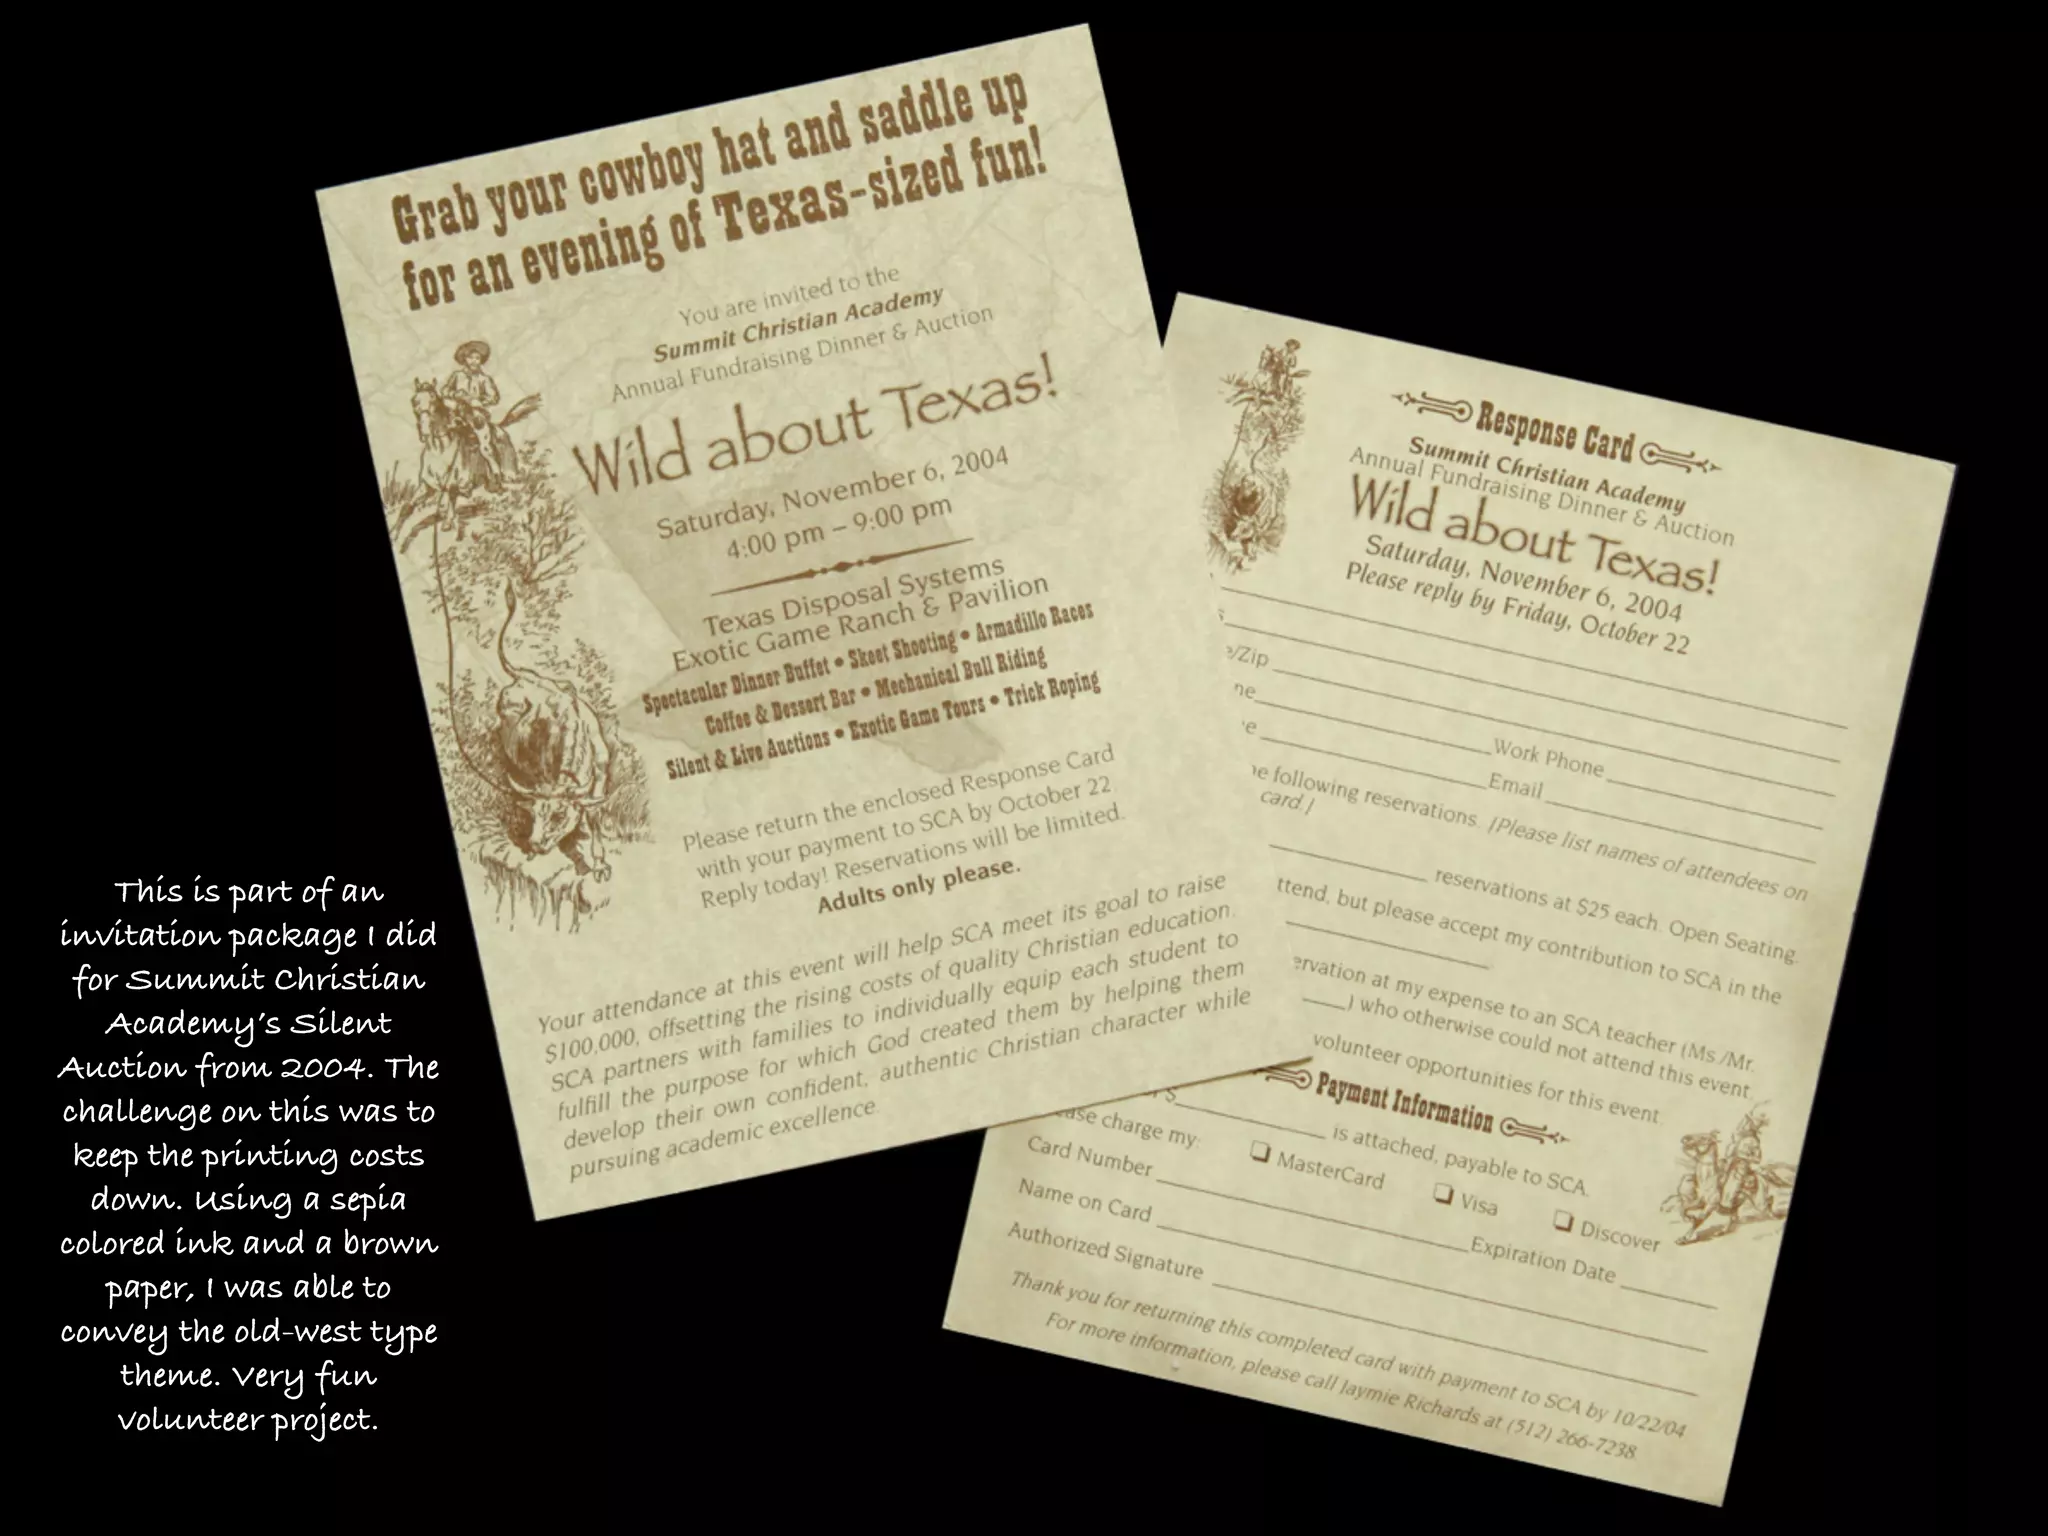 Grab your cowboy hat and saddle up
for an evening of Texas-sized fun!
You are invited to the
Summit Christian Academy
Annual Fundraising Dinner & Auction
Wild about Texas!
Saturday, November 6, 2004
4:00 pm – 9:00 pm
Texas Disposal Systems
Exotic Game Ranch & Pavilion
Spectacular Dinner Buffet • Skeet Shooting • Armadillo Races
Coffee & Dessert Bar • Mechanical Bull Riding
Silent & Live Auctions • Exotic Game Tours • Trick Roping
Please return the enclosed Response Card
with your payment to SCA by October 22.
Reply today! Reservations will be limited.
Adults only please.
Your attendance at this event will help SCA meet its goal to raise
$100,000, offsetting the rising costs of quality Christian education.
SCA partners with families to individually equip each student to
fulfill the purpose for which God created them by helping them
develop their own confident, authentic Christian character while
pursuing academic excellence.
Response Card
Summit Christian Academy
Annual Fundraising Dinner & Auction
Wild about Texas!
Saturday, November 6, 2004
Please reply by Friday, October 22
s
e/Zip
ne
Work Phone
e
Email
he following reservations. (Please list names of attendees on
card.)
reservations at $25 each. Open Seating.
ttend, but please accept my contribution to SCA in the
ervation at my expense to an SCA teacher (Ms./Mr.
) who otherwise could not attend this event.
volunteer opportunities for this event.
Payment Information
$ is attached, payable to SCA.
ase charge my: ❏ MasterCard ❏ Visa ❏ Discover
Card Number Expiration Date
Name on Card
Authorized Signature
Thank you for returning this completed card with payment to SCA by 10/22/04
For more information, please call Jaymie Richards at (512) 266-7238.
This is part of an
invitation package I did
for Summit Christian
Academy's Silent
Auction from 2004. The
challenge on this was to
keep the printing costs
down. Using a sepia
colored ink and a brown
paper, I was able to
convey the old-west type
theme. Very fun
volunteer project.